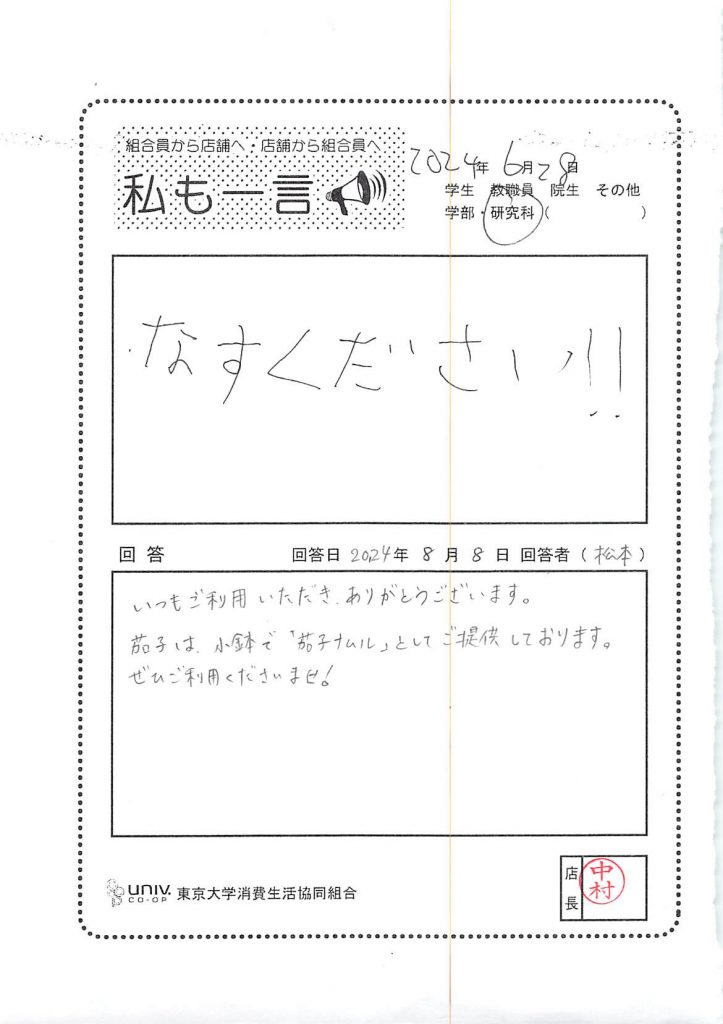 組合員から店舗へ・店舗から組合員へ
私も一言
2024年 6月28日
学生 教職員 院生 その他
学部・研究科（ ）
なすください!!
回答 回答日 2024年 8月8日 回答者（松本）
いつもご利用いただき、ありがとうございます。
茄子は、小鉢で「茄子ナムル」としてご提供しております。
ぜひご利用くださいませ!
店長 中村
UNIV. CO-OP 東京大学消費生活協同組合